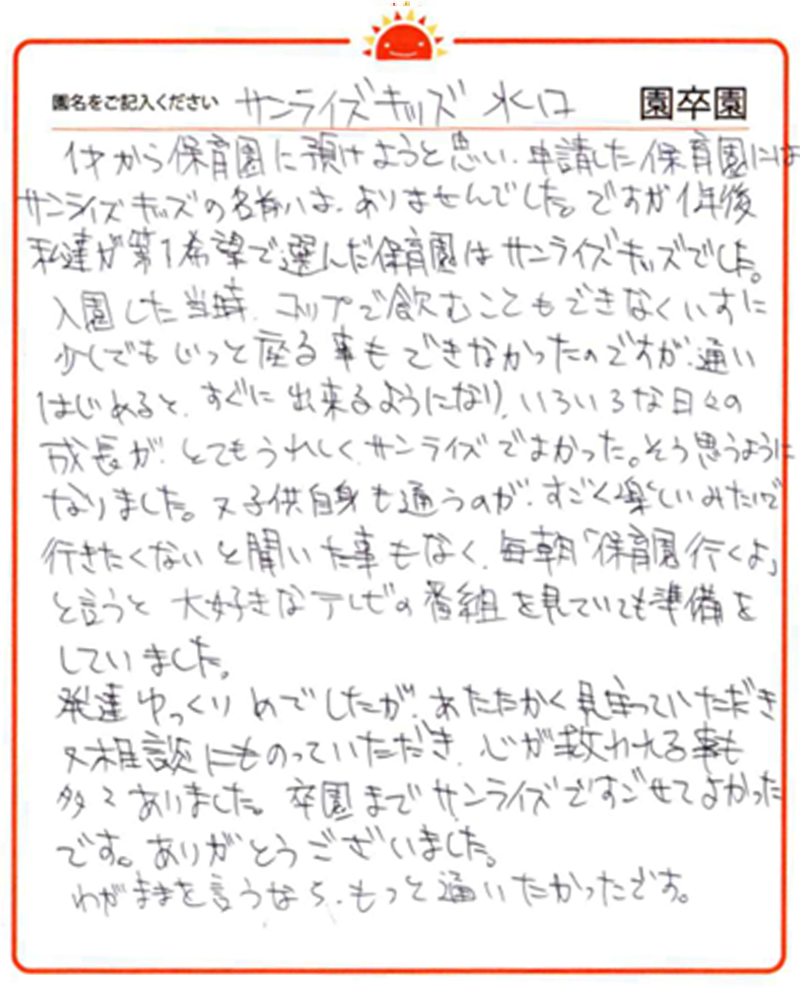 園名をご記入ください サンライズキッズ 水口 園卒園
1才から保育園に預けようと思い、申請した保育園には
サンライズキッズの名前は、ありませんでした。ですが1年後
私達が第1希望で選んだ保育園はサンライズキッズでした。
入園した当時、コップで飲むこともできなくいすに
少しでもじっと座る事もできなかったのですが、通い
はじめると、すぐに出来るようになり、いろいろな日々の
成長が、とてもうれしく、サンライズでよかった。そう思うように
なりました。又子供自身も通うのが、すごく楽しいみたいで
行きたくないと聞いた事もなく、毎朝「保育園行くよ」
と言うと大好きなテレビの番組を見ていても準備を
していました。
発達ゆっくりめでしたが、あたたかく見守っていただき
又相談にものっていただき、心が救われる事も
多々ありました。卒園までサンライズですごせてよかった
です。ありがとうございました。
わがままを言うなら、もっと通いたかったです。